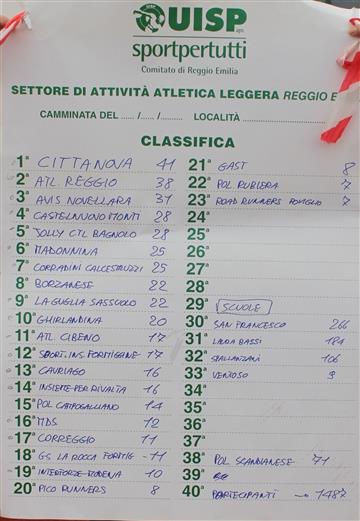 UISP
sportpertutti
Comitato di Reggio Emilia
SETTORE DI ATTIVITÀ ATLETICA LEGGERA REGGIO E
CAMMINATA DEL ...../...../......... LOCALITÀ
CLASSIFICA
1ª CITTANOVA 41
2ª ATL REGGIO 38
3ª AVIS NOVELLARA 31
4ª CASTELNUOVO MONTI 28
5ª JOLLY CTL BAGNOLO 28
6ª MADONNINA 25
7ª CORRADINI CALCESTRUZZI 25
8ª BORZANESE 22
9ª LA GUGLIA SASSUOLO 22
10ª GHIRLANDINA 20
11ª ATL CIBENO 17
12ª SPORT.INS.FORMIGINE 17
13ª CAVRIAGO 16
14ª INSIEME PER RIVALTA 16
15ª POL CAMPOGALLIANO 14
16ª MDS 12
17ª CORREGGIO 11
18ª GS LA ROCCA FORMIG 11
19ª INTERFORZE MODENA 10
20ª PICO RUNNERS 8
21ª GAST 8
22ª POL RUBIERA 7
23ª ROAD RUNNERS POVIGLIO 7
24ª
25ª
26ª
27ª
28ª
29ª SCUOLE
30ª SAN FRANCESCO 266
31ª LAURA BASSI 184
32ª SPALLANZANI 106
33ª VENOSO 9
34ª
35ª
36ª
37ª
38ª POL SCANDIANESE 71
39ª
40ª PARTECIPANTI 1487